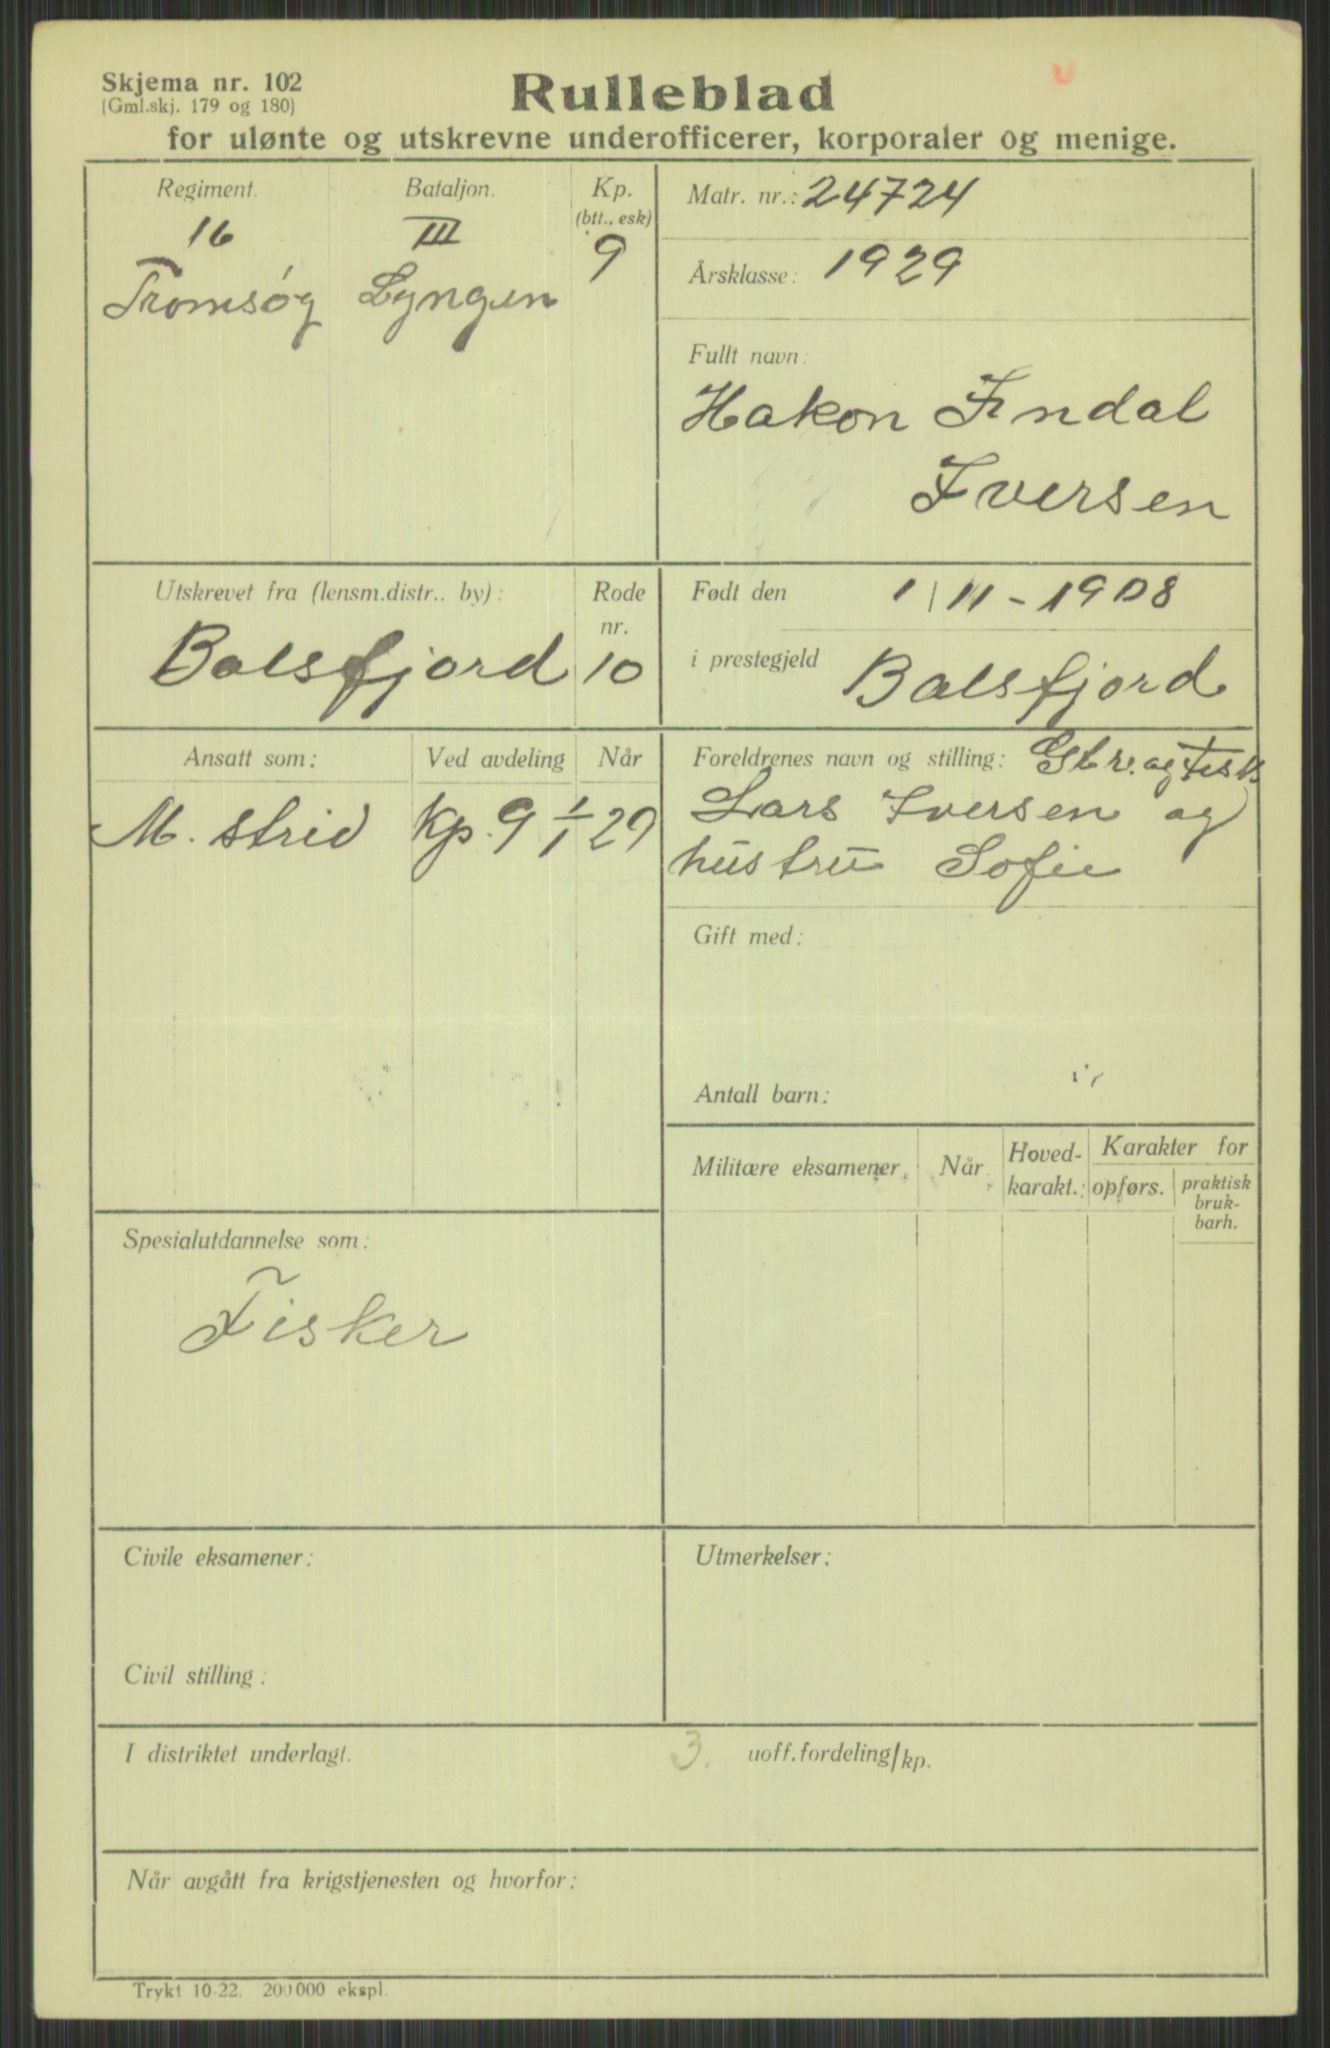 Skjema nr. 102
(Gml.skj. 179 og 180)
Rulleblad
for ulønte og utskrevne underofficerer, korporaler og menige.
Regiment.
16
Tromsøg
Bataljon.
III
Lyngen
Kp.
(btt., esk)
9
Matr. nr.: 24724
Årsklasse: 1929
Fullt navn:
Hakon Indal
Iversen
Utskrevet fra (lensm.distr.. by):
Balsfjord
Rode
nr.
10
Født den 1/11-1908
i prestegjeld Balsfjord
Ansatt som: Ved avdeling Når
M. strid Kp. 9 1/1 29
Foreldrenes navn og stilling: Gbr. og Fisk
Lars Iversen og
hustru Sofie
Gift med:
Antall barn:
Militære eksamener
Når
Hoved-
karakt.:
Karakter for
opførs.
praktisk
bruk-
barh.
Spesialutdannelse som:
Fisker
Civile eksamener:
Civil stilling:
Utmerkelser:
I distriktet underlagt. 3. uoff.fordeling/kp.
Når avgått fra krigstjenesten og hvorfor:
Trykt 10-22. 200000 ekspl.